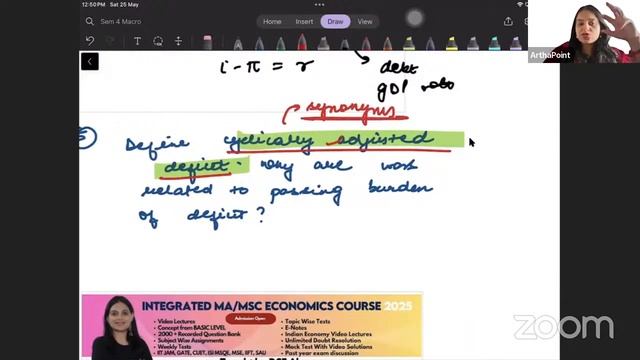 12:50 PM Sat 25 May
Sem 4 Macro
Home Insert Draw View
ArthaPoint
i - π = r
debt
gdp ratio
synonyms
5
Define cyclically adjusted
deficit. Why are wars
related to passing burden
of deficit?
INTEGRATED MA/MSC ECONOMICS COURSE 2025
Admission Open
• Video Lectures
• Concept from BASIC LEVEL
• 2000 + Recorded Question Bank
• Subject Wise Assignments
• Weekly Tests
• IIT JAM, GATE, CUET, ISI MSQE, MSE, IIFT, SAU
• Topic Wise Tests
• E-Notes
• Indian Economy Video Lectures
• Unlimited Doubt Resolution
• Mock Test With Video Solutions
• Past year exam discussion
zoom